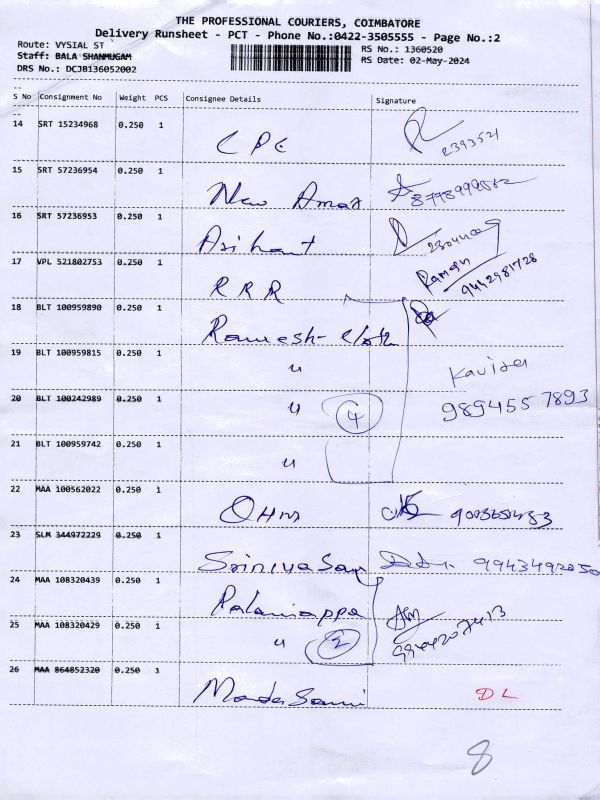 THE PROFESSIONAL COURIERS, COIMBATORE
Delivery Runsheet - PCT - Phone No.:0422-3505555 - Page No.:2
Route: VYSIAL ST RS No.: 1360520
Staff: BALA SHANMUGAM RS Date: 02-May-2024
DRS No.: DCJB136052002
S No Consignment No Weight PCS Consignee Details Signature
14 SRT 15234968 0.250 1 CPC 2393521
15 SRT 57236954 0.250 1 New Amar
16 SRT 57236953 0.250 1 Arihant
Raman
9442981728
17 VPL 521802753 0.250 1 RRR
18 BLT 100959890 0.250 1 Ramesh- Cloth
19 BLT 100959815 0.250 1 "
Kavitha
20 BLT 100242989 0.250 1 " 4 9894557893
21 BLT 100959742 0.250 1 "
22 MAA 100562022 0.250 1 OHM
23 SLM 344972229 0.250 1 Srinivasan 9943492050
24 MAA 108320439 0.250 1 Palaniappa
25 MAA 108320429 0.250 1 " 2
26 MAA 864852320 0.250 1 Mada Sami DL
8